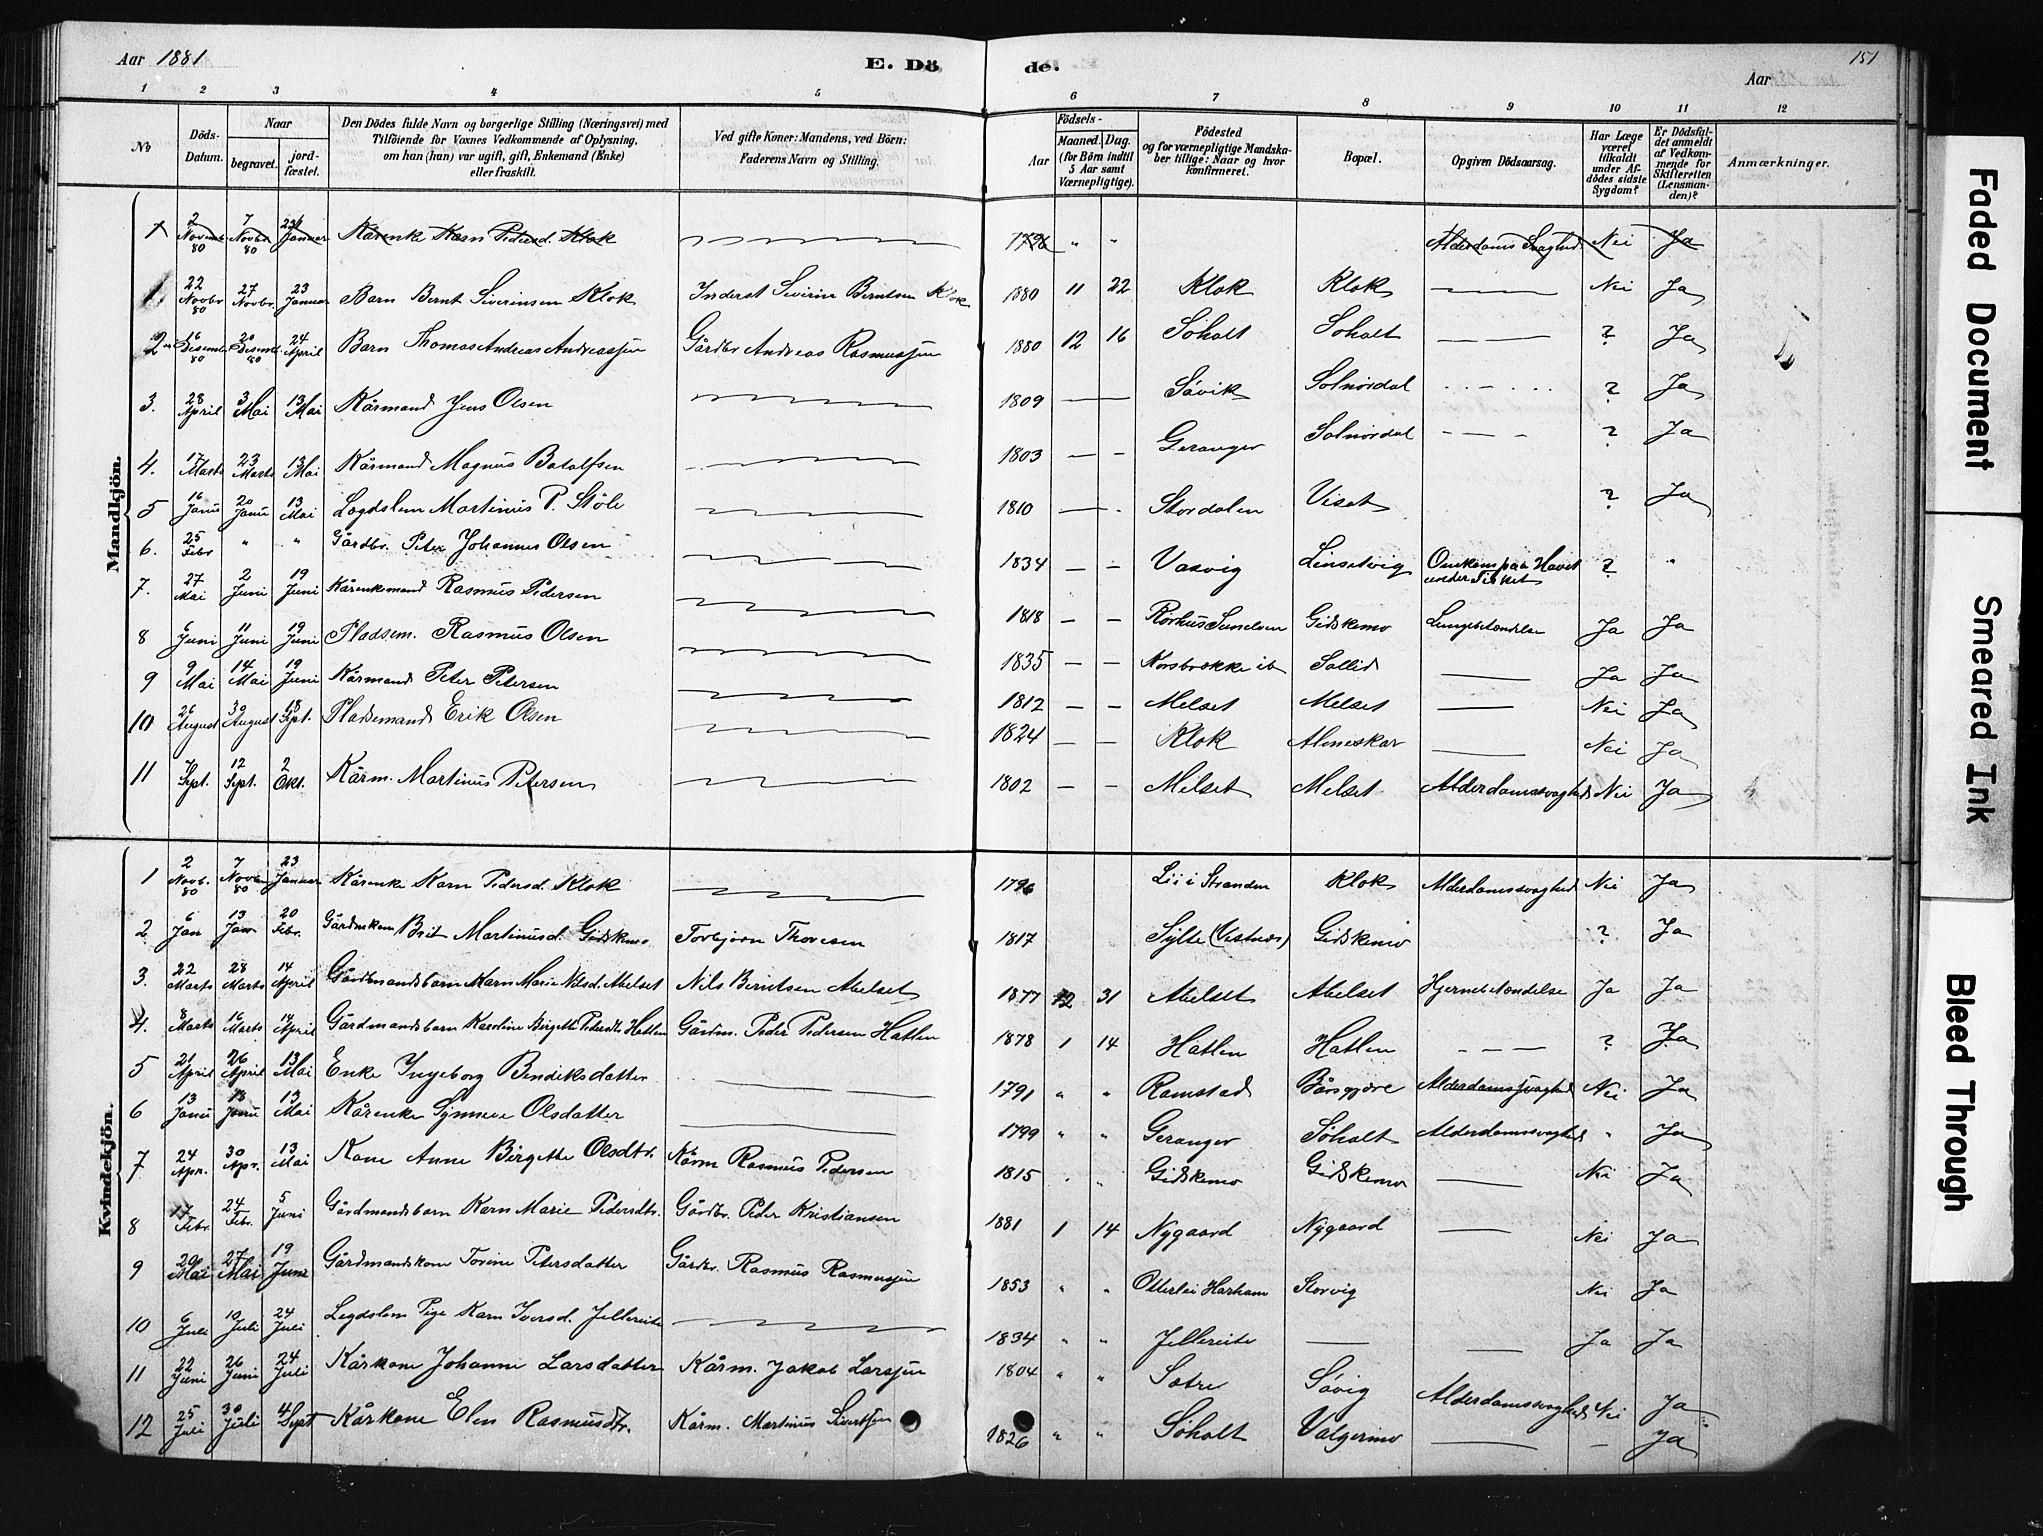 Aar 1881 E. Döde. Aar 151
1 2 3 4 5 6 7 8 9 10 11 12
No Döds-Datum. Naar begravet. jordfæstet. Den Dödes fulde Navn og borgerlige Stilling (Næringsvei) med Tilföiende for Voxnes Vedkommende af Oplysning, om han (hun) var ugift, gift, Enkemand (Enke) eller fraskilt. Ved gifte Koner: Mandens, ved Börn: Faderens Navn og Stilling. Födsels- Aar Maaned. Dag. (for Börn indtil 5 Aar samt Værnepligtige). Födested og for værnepligtige Mandskaber tillige: Naar og hvor konfirmeret. Bopæl. Opgiven Dödsaarsag. Har Læge været tilkaldt under Afdödes sidste Sygdom? Er Dödsfaldet anmeldt af Vedkommende for Skifteretten (Lensmanden)? Anmærkninger.
Mandkjön.
1 2 Novemb 80 7 Novbr 80 23 Januar Kårenke Karn Pedersd. Klok 1796 " " Alderdoms Svaghed Nei Ja
1. 22 Novbr 80 27 Novbr. 23 Januar Barn Bernt Siverinsen Klok Inderst Siverin Berntsen Klok 1880 11 22 Klok Klok Nei Ja
2 16 Desemb 80 20 Desemb. 80 24 April Barn Thomas Andreas Andreassen Gårdbr Andreas Rasmussen 1880 12 16 Söholt Soholt ? Ja
3. 28 April 3 Mai 13 Mai Kårmand Jens Olsen 1809 Sövik Solnördal ? Ja
4. 17 Marts 23 Marts 13 Mai Kårmand Magnus Botolfsen 1803 Geranger Solnördal ? Ja
5 16 Janu 20 Janu 13 Mai Legdslem Martinus P. Stöle 1810 Stordalen Viset ? Ja
6. 25 Febr " " Gårdbr. Peter Johannes Olsen 1834 Vasvig Linsetvig Omkom paa Havet under Fisket ? "
7. 27 Mai 2 Juni 19 Juni Kårenkemand Rasmus Pedersen 1818 Rörhus Sunelven Gidskemo Lungebetændelse Ja Ja
8 6 Juni 11 Juni 19 Juni Pladsem. Rasmus Olsen 1835 Korsbrække ib Sollid Ja Ja
9 9 Mai 14 Mai 19 Juni Kårmand Peter Petersen 1812 Melset Melset Nei Ja
10 26 August 30 August 18 Sept. Pladsemand Erik Olsen 1824 Klok Nei Ja
11 7 Sept. 12 Sept. 2 Okt. Kårm. Martinus Petersen 1802 Melset Melset Alderdomssvaghed Nei Ja
Kvindekjön.
1 2 Novb. 80 7 Novbr 80 23 Januar Kårenke Karn Pedersd. Klok 1796 Lii i Stranden Klok Alderdomssvaghed Nei Ja
2 6 Jan 13 Jan 20 Febr. Gårdmkone Brit Martinusd. Gidskemo Torbjorn Thoresen 1817 Sylte (Vestnes) Gidskemo ? Ja
3. 22 Marts 28 Marts 14 April Gårdmandsbarn Karn Marie Nilsd. Abelset Nils Berntsen Abelset 1877 12 31 Abelset Abelset Hjernebetændelse Ja Ja
4. 8 Marts 16 Marts 14 April Gårdmandsbarn Karoline Birgitte Pedersdtr Hatlen Gårdm. Peder Pedersen Hatlen 1878 1 14 Hatlen Hatlen ? Ja
5 21 April 26 April 13 Mai Enke Ingeborg Bendiksdatter 1791 " " Ramstad Alderdomssvaghed Nei Ja
6 13 Janu 18 Janu 13 Mai Kårenke Synneve Olsdatter 1799 " " Geranger Söholt Alderdomssvaghed " Ja
7 24 Apr. 30 Apr. 13 Mai Kone Anne Birgitte Olsdtr. Kårm Rasmus Pedersen 1815 " " Gidskemo Gidskemo Nei Ja
8 17 Febr. 24 Febr. 5 Juni Gårdmandsbarn Karn Marie Pedersdtr. Gårdbr. Peder Kristiansen 1881 1 14 Nygaard Nygaard Nei Ja
9 20 Mai 27 Mai 19 Juni Gårdmandskone Torine Petersdatter Gårdbr. Rasmus Rasmussen 1853 " " Otterlei Harham Storvig Nei Ja
10 6 Juli 10 Juli 24 Juli Legdslem Pige Karn Iversd. Jellereite 1834 " " Jellereite Ja Ja
11 22 Juni 26 Juni 24 Juli Kårkone Johanne Larsdatter Kårm. Jakob Larssen 1804 " " Sætre Sövig Alderdomssvaghed Nei Ja
12 25 Juli 30 Juli 4 Sept Kårkone Elen Rasmusdtr. Kårm. Martinus Sivertsen 1826 " " Söholt Valgermo Ja
Faded Document
Smeared Ink
Bleed Through